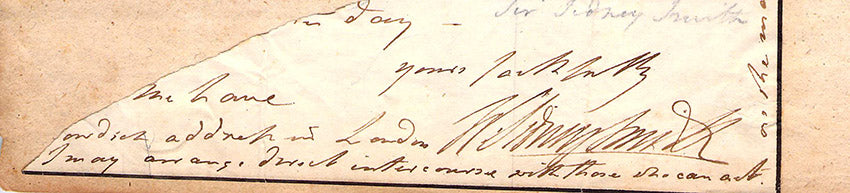 in day – Sir Sidney Smith
yours faithfully
me have
address in London W Sidney Smith
I may arrange direct intercourse with those who can act
as the